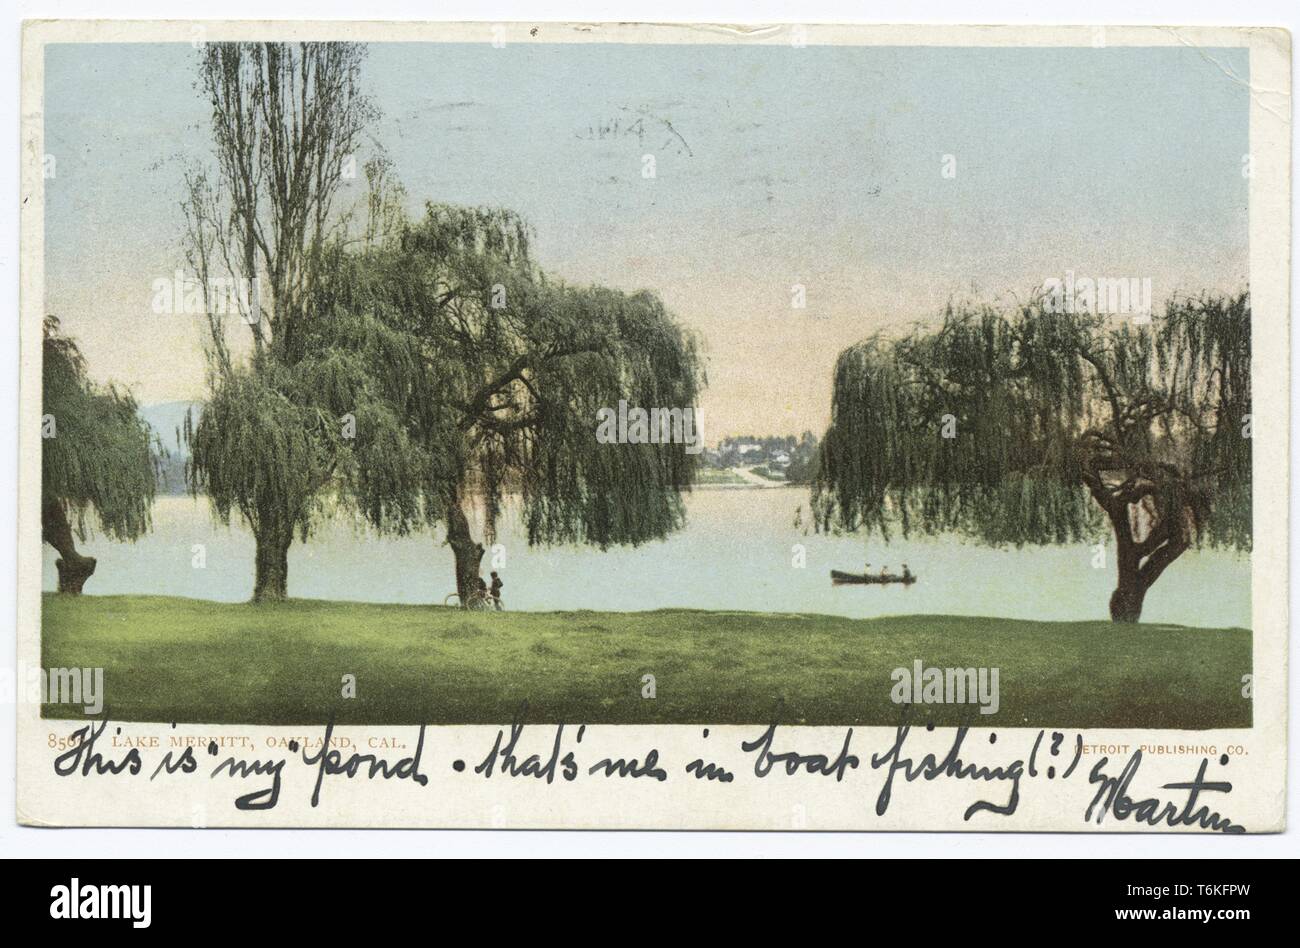 856 LAKE MERRITT, OAKLAND, CAL. DETROIT PUBLISHING CO.
This is "my" pond. that's me in boat fishing (?) Martin
alamy
Image ID: T6KFPW
www.alamy.com